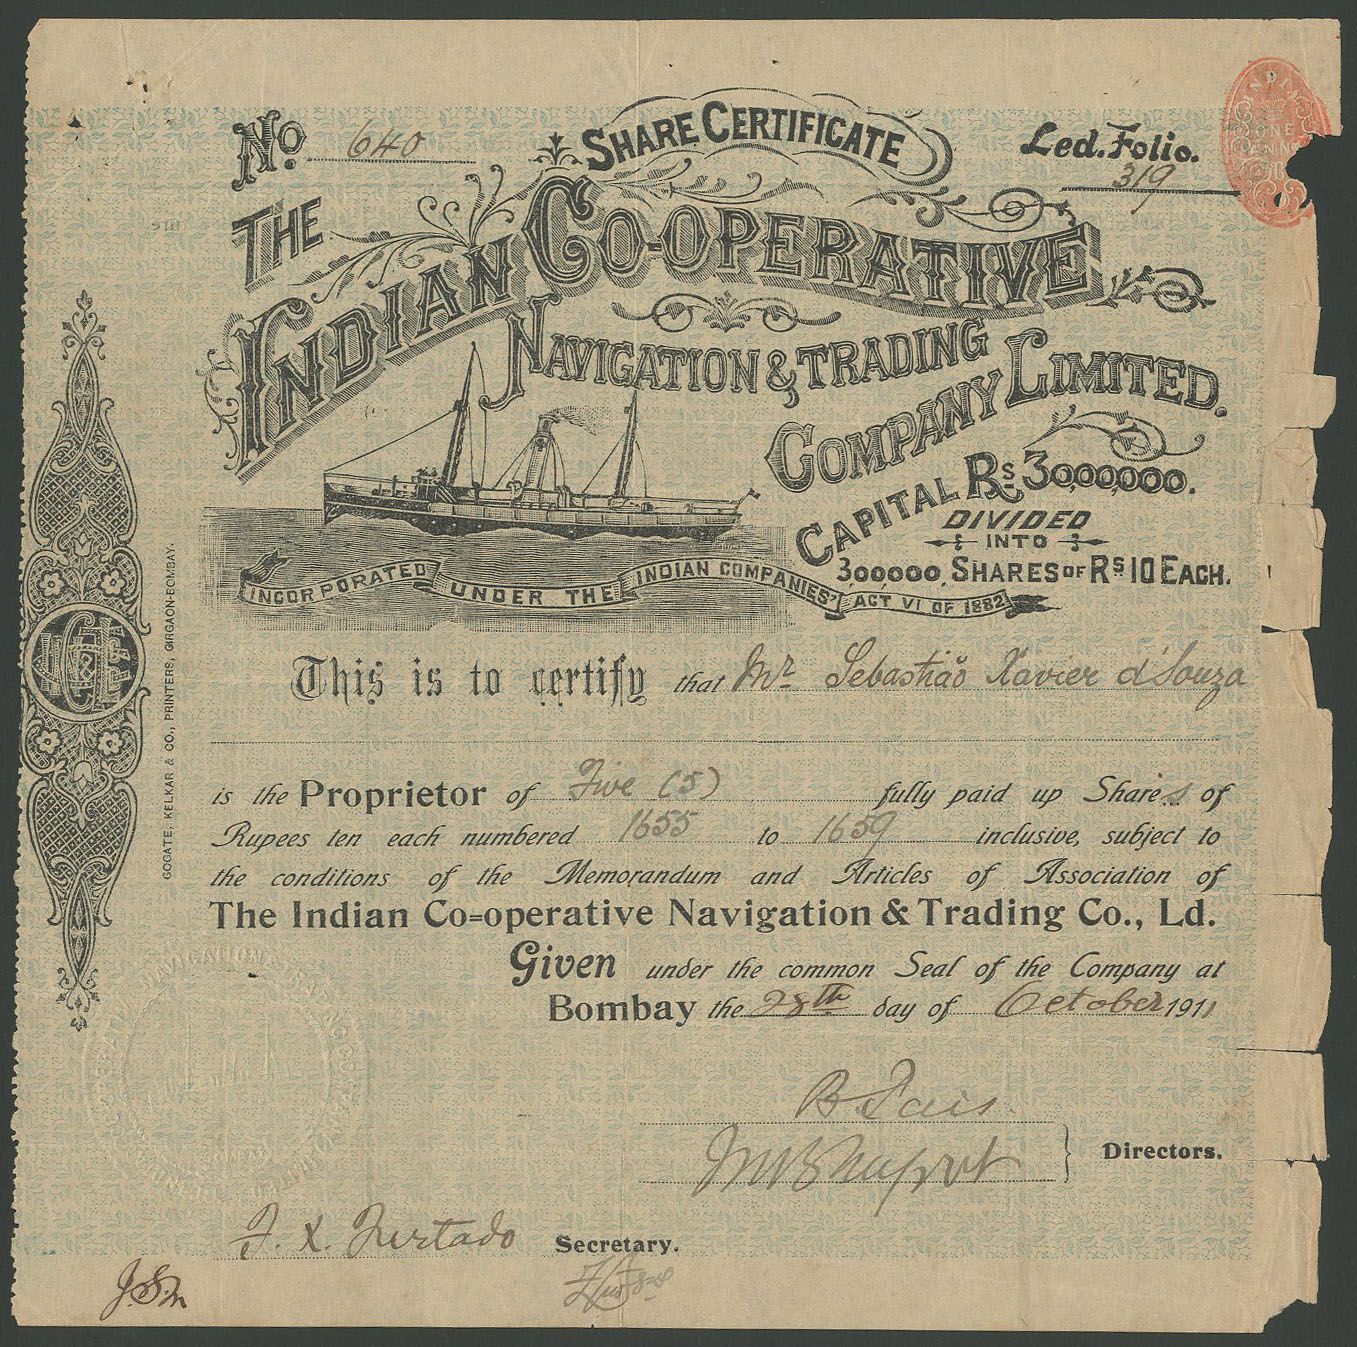 No 640
SHARE CERTIFICATE
Led. Folio.
319
INDIA
ONE
ANNA
THE
INDIAN CO-OPERATIVE
NAVIGATION & TRADING
COMPANY LIMITED.
CAPITAL Rs 3,000,000.
DIVIDED
INTO
300,000, SHARES OF Rs 10 EACH.
INCORPORATED UNDER THE INDIAN COMPANIES' ACT VI OF 1882
This is to certify that Mr Sebastião Xavier d'Souza
is the Proprietor of Five (5) fully paid up Shares of
Rupees ten each numbered 1655 to 1659 inclusive, subject to
the conditions of the Memorandum and Articles of Association of
The Indian Co=operative Navigation & Trading Co., Ld.
Given under the common Seal of the Company at
Bombay the 28th day of October 1911
Directors.
F. X. Furtado Secretary.
GOGATE, KELKAR & CO., PRINTERS, GIRGAON-BOMBAY.